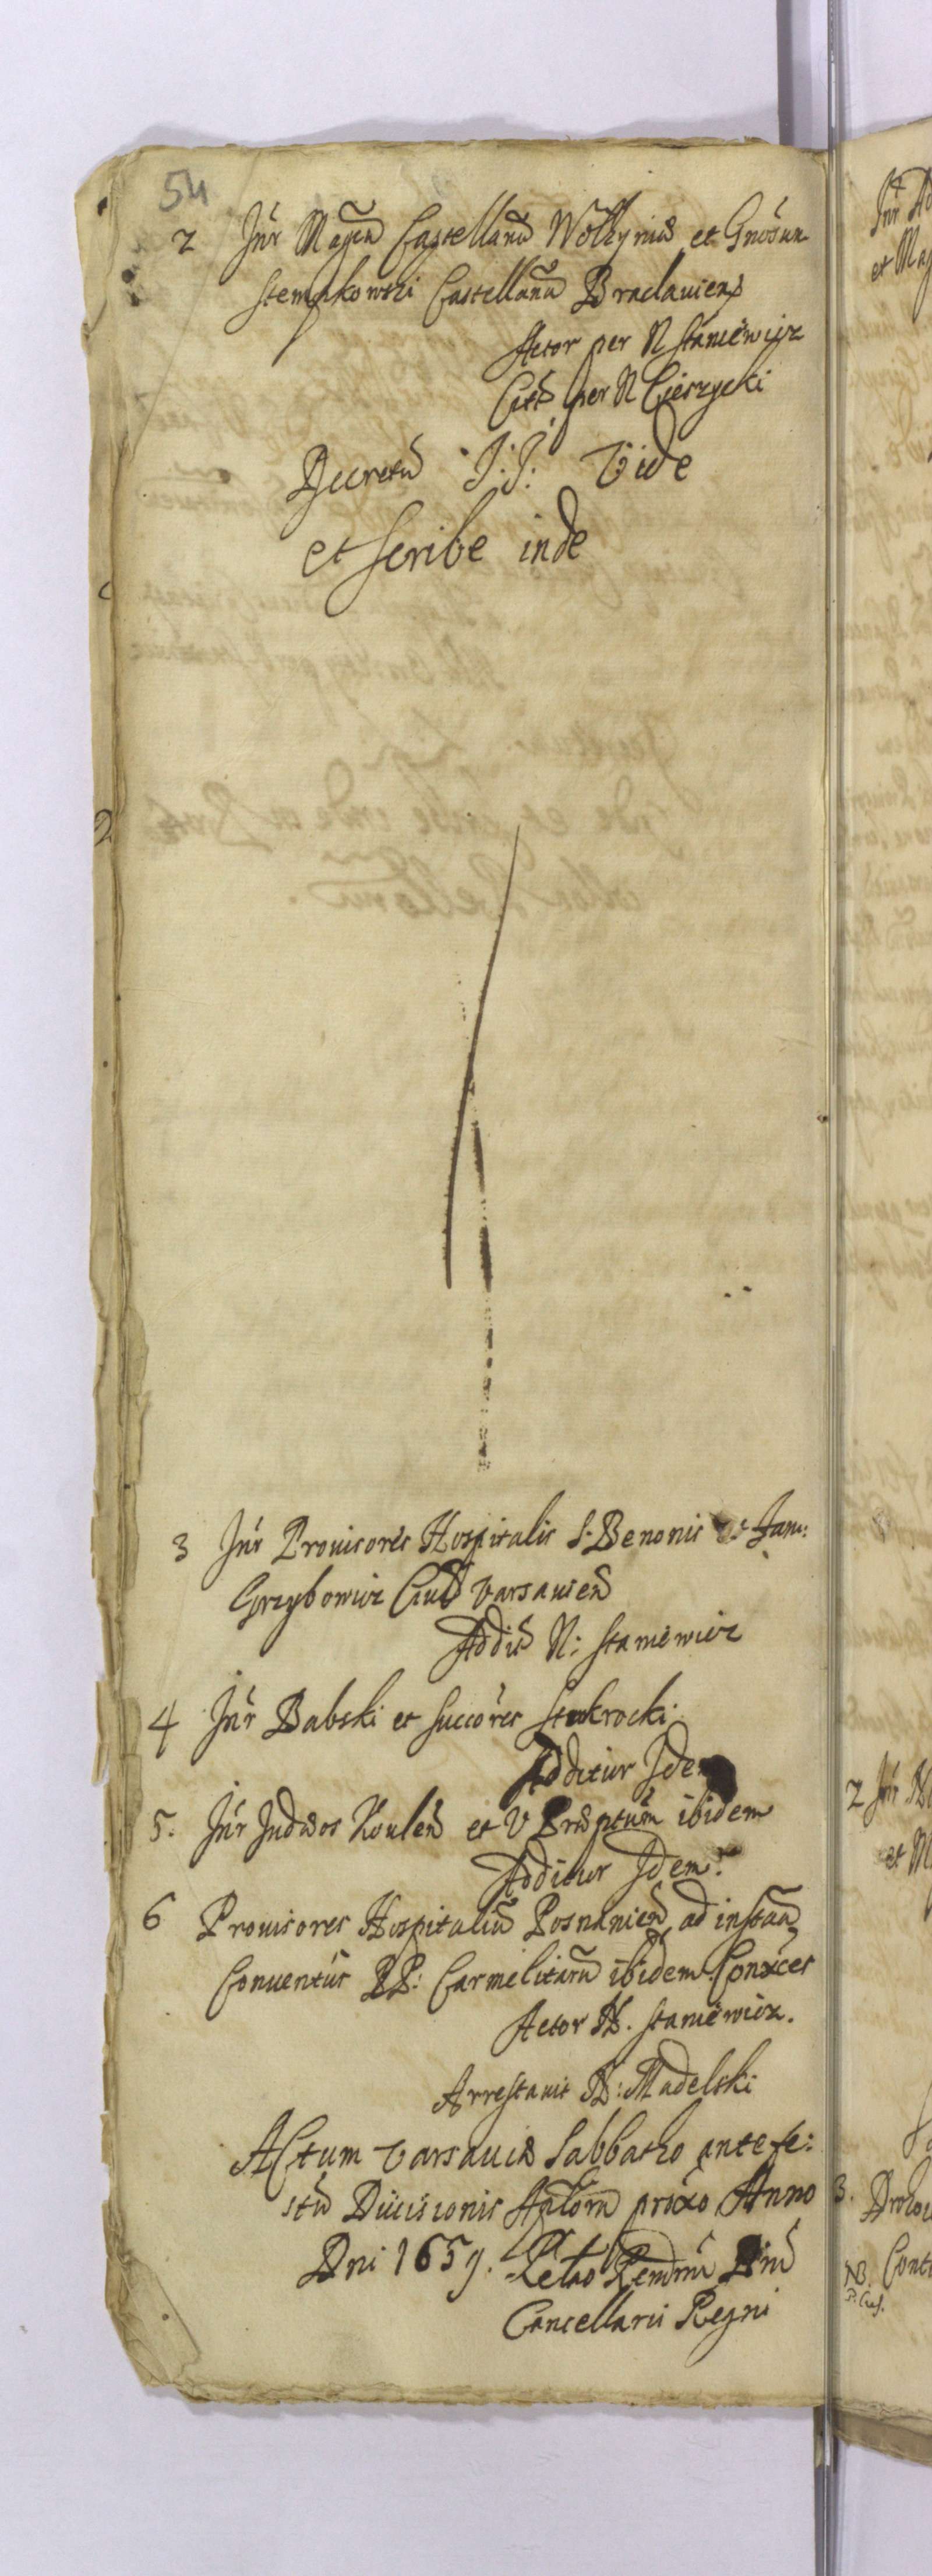 54
2 Inr Magcu Castellanu Wolhyniæ et Gnosum
Stempkowski Castellanu Braclauiens
Actor per N Staniewicz
Citt per N Cieszycki
Decretu I: I: Vide
et scribe inde
3 Inr Prouisores Hospitalis S. Benonis et Fam:
Grzybowicz Ciues Varsauien
Addit N: Staniewicz
4 Inr Babski et succores
Additur Idem
5. Inr Judæos et V ibidem
Additur Idem
6 Prouisores Hospitaliu Posnanien ad instan
Conuentus PP: Carmelitaru ibidem
Actor N. Staniewicz.
Arrestauit N: Madelski
Actum Varsauiæ Sabbatho ante fe:
stu Diuisionis Aplorn proxo Anno
Dni 1659. Relao Rendmi Dni
Cancellarii Regni
2 Inr
et
3.
NB. Cont